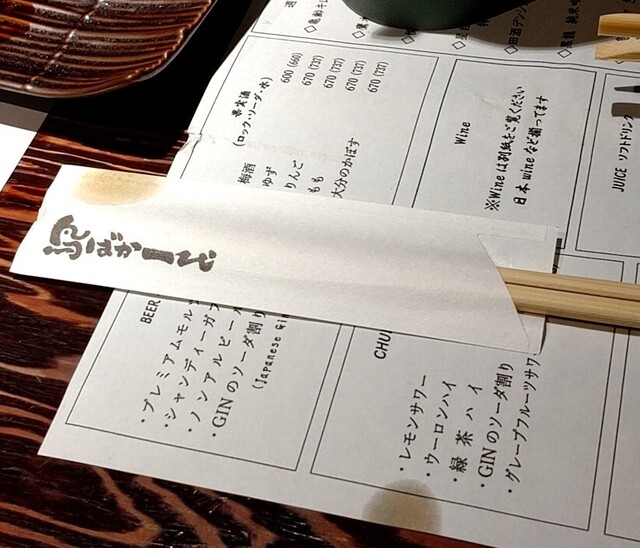 果実酒
(ロック・ソーダ・水)
梅酒 600 (660)
ゆず 670 (737)
りんご 670 (737)
もも 670 (737)
大分のかぼす 670 (737)
Wine
※Wineは別紙をご覧ください
日本wineなど揃ってます
JUICE ソフトドリンク
BEER
・プレミアムモル
・シャンディーガフ
・ノンアルビール
・GINのソーダ割り
(Japanese Gin
CHU
・レモンサワー
・ウーロンハイ
・緑茶ハイ
・GINのソーダ割り
・グレープフルーツサワ